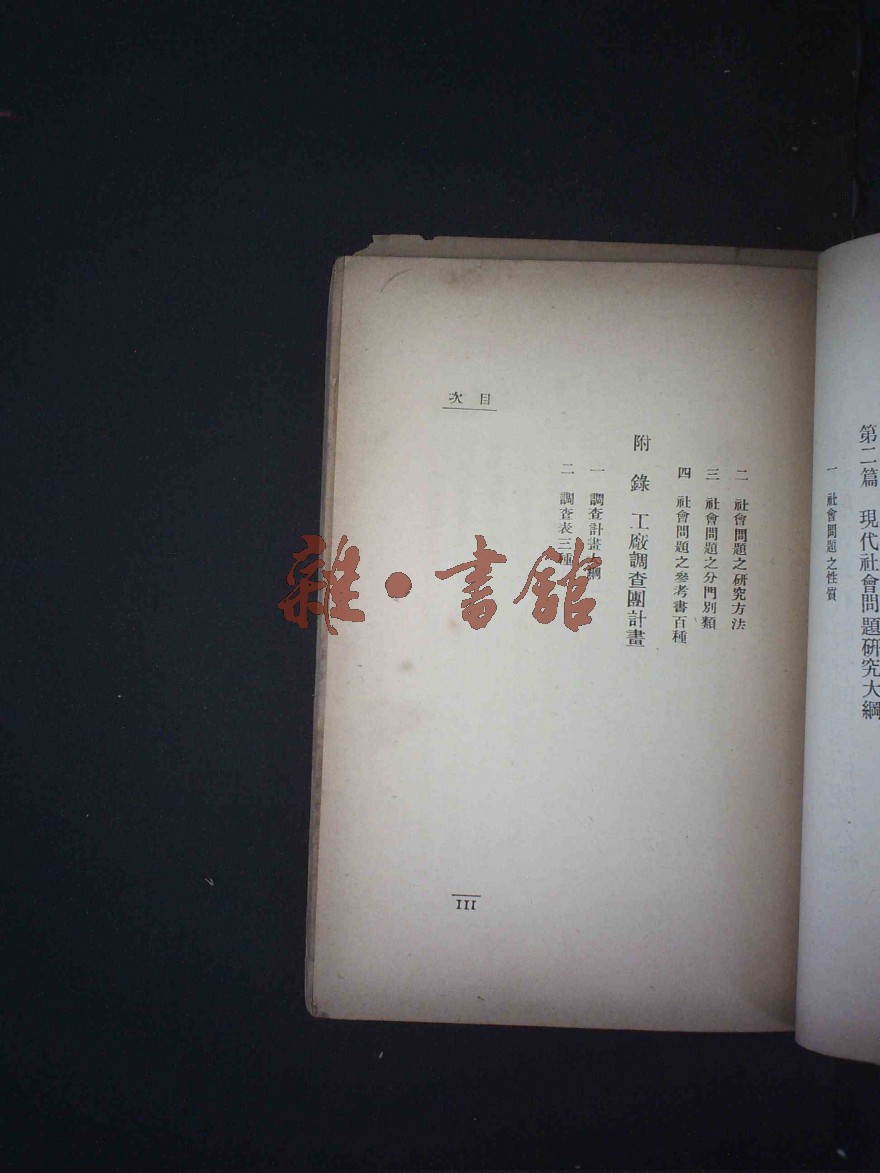 第二篇　現代社會問題研究大綱
一　社會問題之性質
二　社會問題之研究方法
三　社會問題之分門別類
四　社會問題之參考書百種
附　錄　工廠調查團計畫
一　調查計畫大綱
二　調查表三種
次　目
III
雜・書館